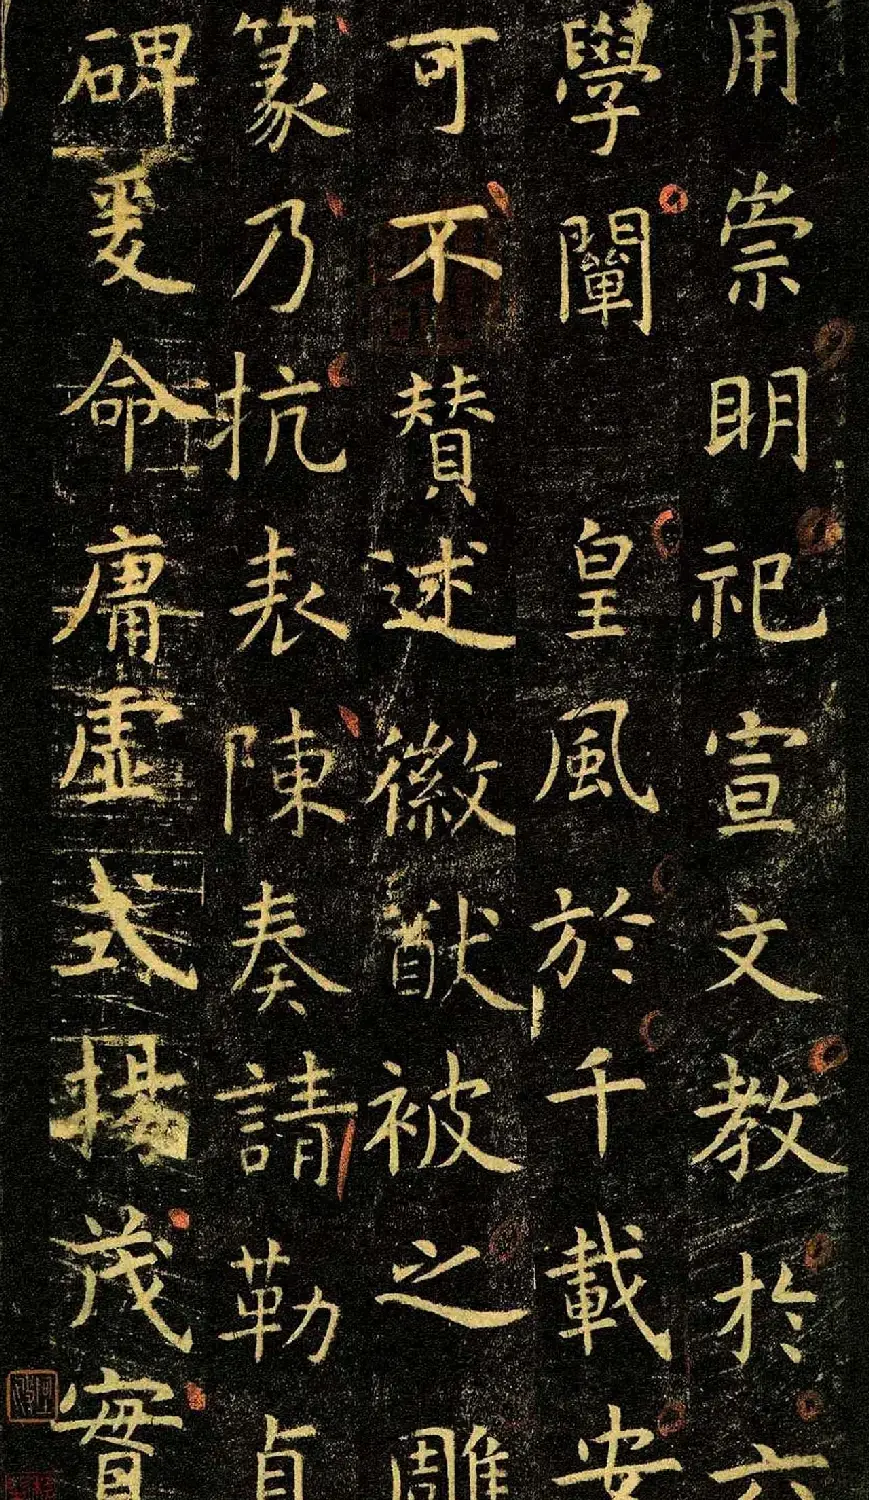 用崇明祀宣文教於六
學闡皇風於千載安
可不賛述徽猷被之雕
篆乃抗表陳奏請勒貞
碑爰命庸虛式揚茂實